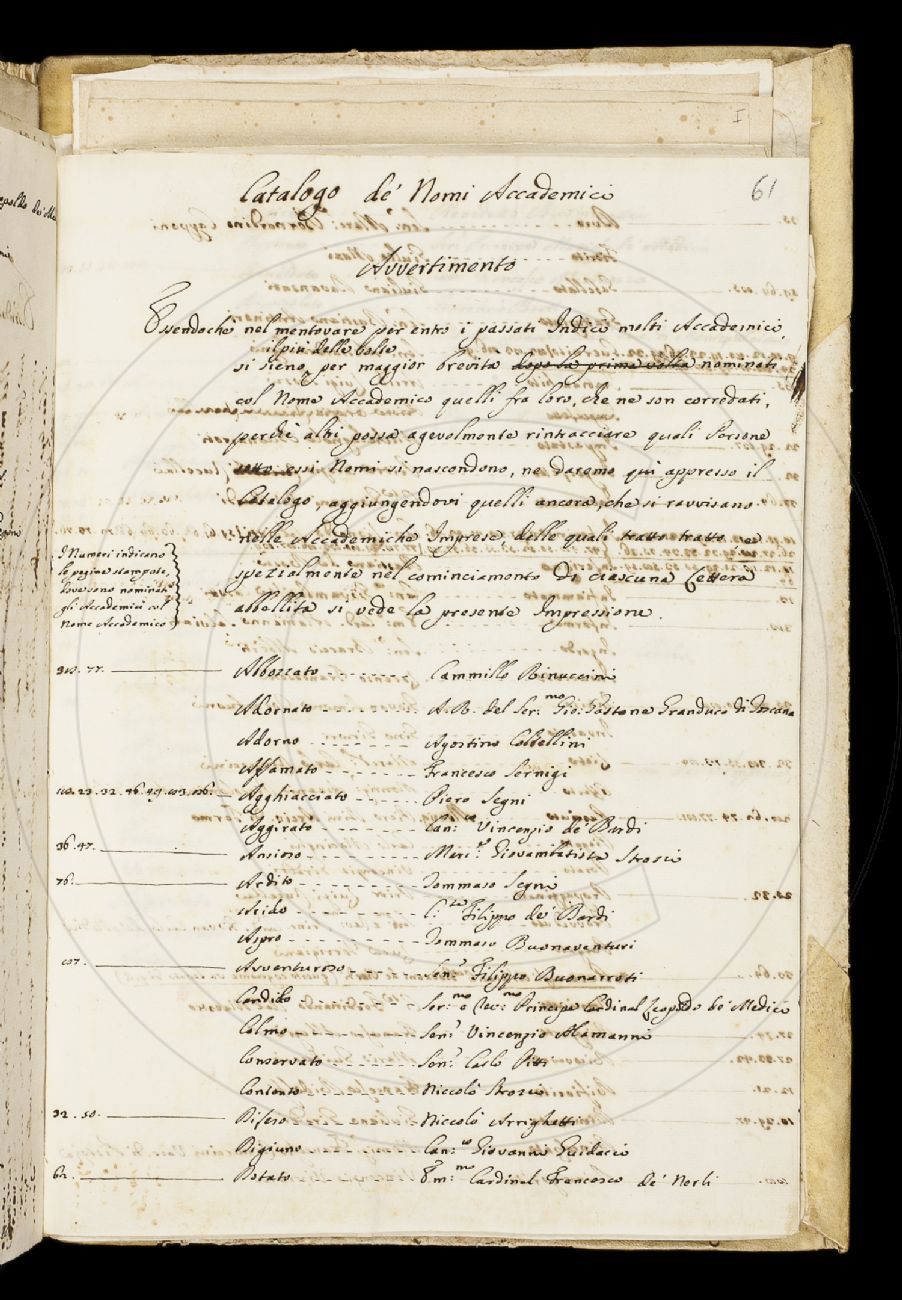 61
Catalogo de' Nomi Accademici
Avvertimento
Essendochè nel mentovare per entro i passati Indici molti Accademici,
il più delle volte
si sieno, per maggior brevità dopo la prima volta nominati
col Nome Accademico quelli fra loro, che ne son corredati,
perchè altri possa agevolmente rintracciare quali Persone
sotto essi Nomi si nascondono, ne daremo quì appresso il
Catalogo, aggiungendovi quelli ancora, che si ravvisano
nelle Accademiche Imprese, delle quali tratto tratto, e
spezialmente nel cominciamento di ciascuna Lettera
abbellita si vede la presente Impressione.
I Numeri indicano
le pagine stampate,
dove sono nominati
gli Accademici col
Nome Accademico
Abbozzato Cammillo Rinuccini
Adornato A.R. del Ser.mo Gio: Gastone Granduca di Toscana
Adorno Agostino Coltellini
Affamato Francesco Sernigi
Agghiacciato Piero Segni
Aggirato Can.co Vincenzio de' Bardi
36. 47. Ansioso Marc.e Giovambatista Strozzi
76. Ardito Tommaso Segni
Filippo de' Bardi
Aspro Tommaso Buonaventuri
107. Avventuroso Sen.r Filippo Buonarroti
Candido Ser.mo e Rev.mo Principe Cardinal Leopoldo de' Medici
Calmo Sen.r Vincenzio Alamanni
Conservato Sen.r Carlo Pitti
Contento Niccolò Strozzi
32. 50. Difeso Niccolò Arrighetti
Digiuno Can.co Giovanni Guidacci
Dotato Em.mo Cardinal Francesco de' Nerli